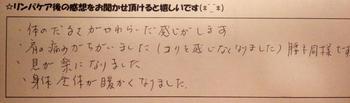 ☆リンパケア後の感想をお聞かせ頂けると嬉しいです(ﾖ´｀ﾖ)
・体のだるさがやわらいだ感じがします
・肩の痛みがちがいました(コリを感じなくなりました)腰も同様です
・息が楽になりました
・身体全体が暖かくなりました。